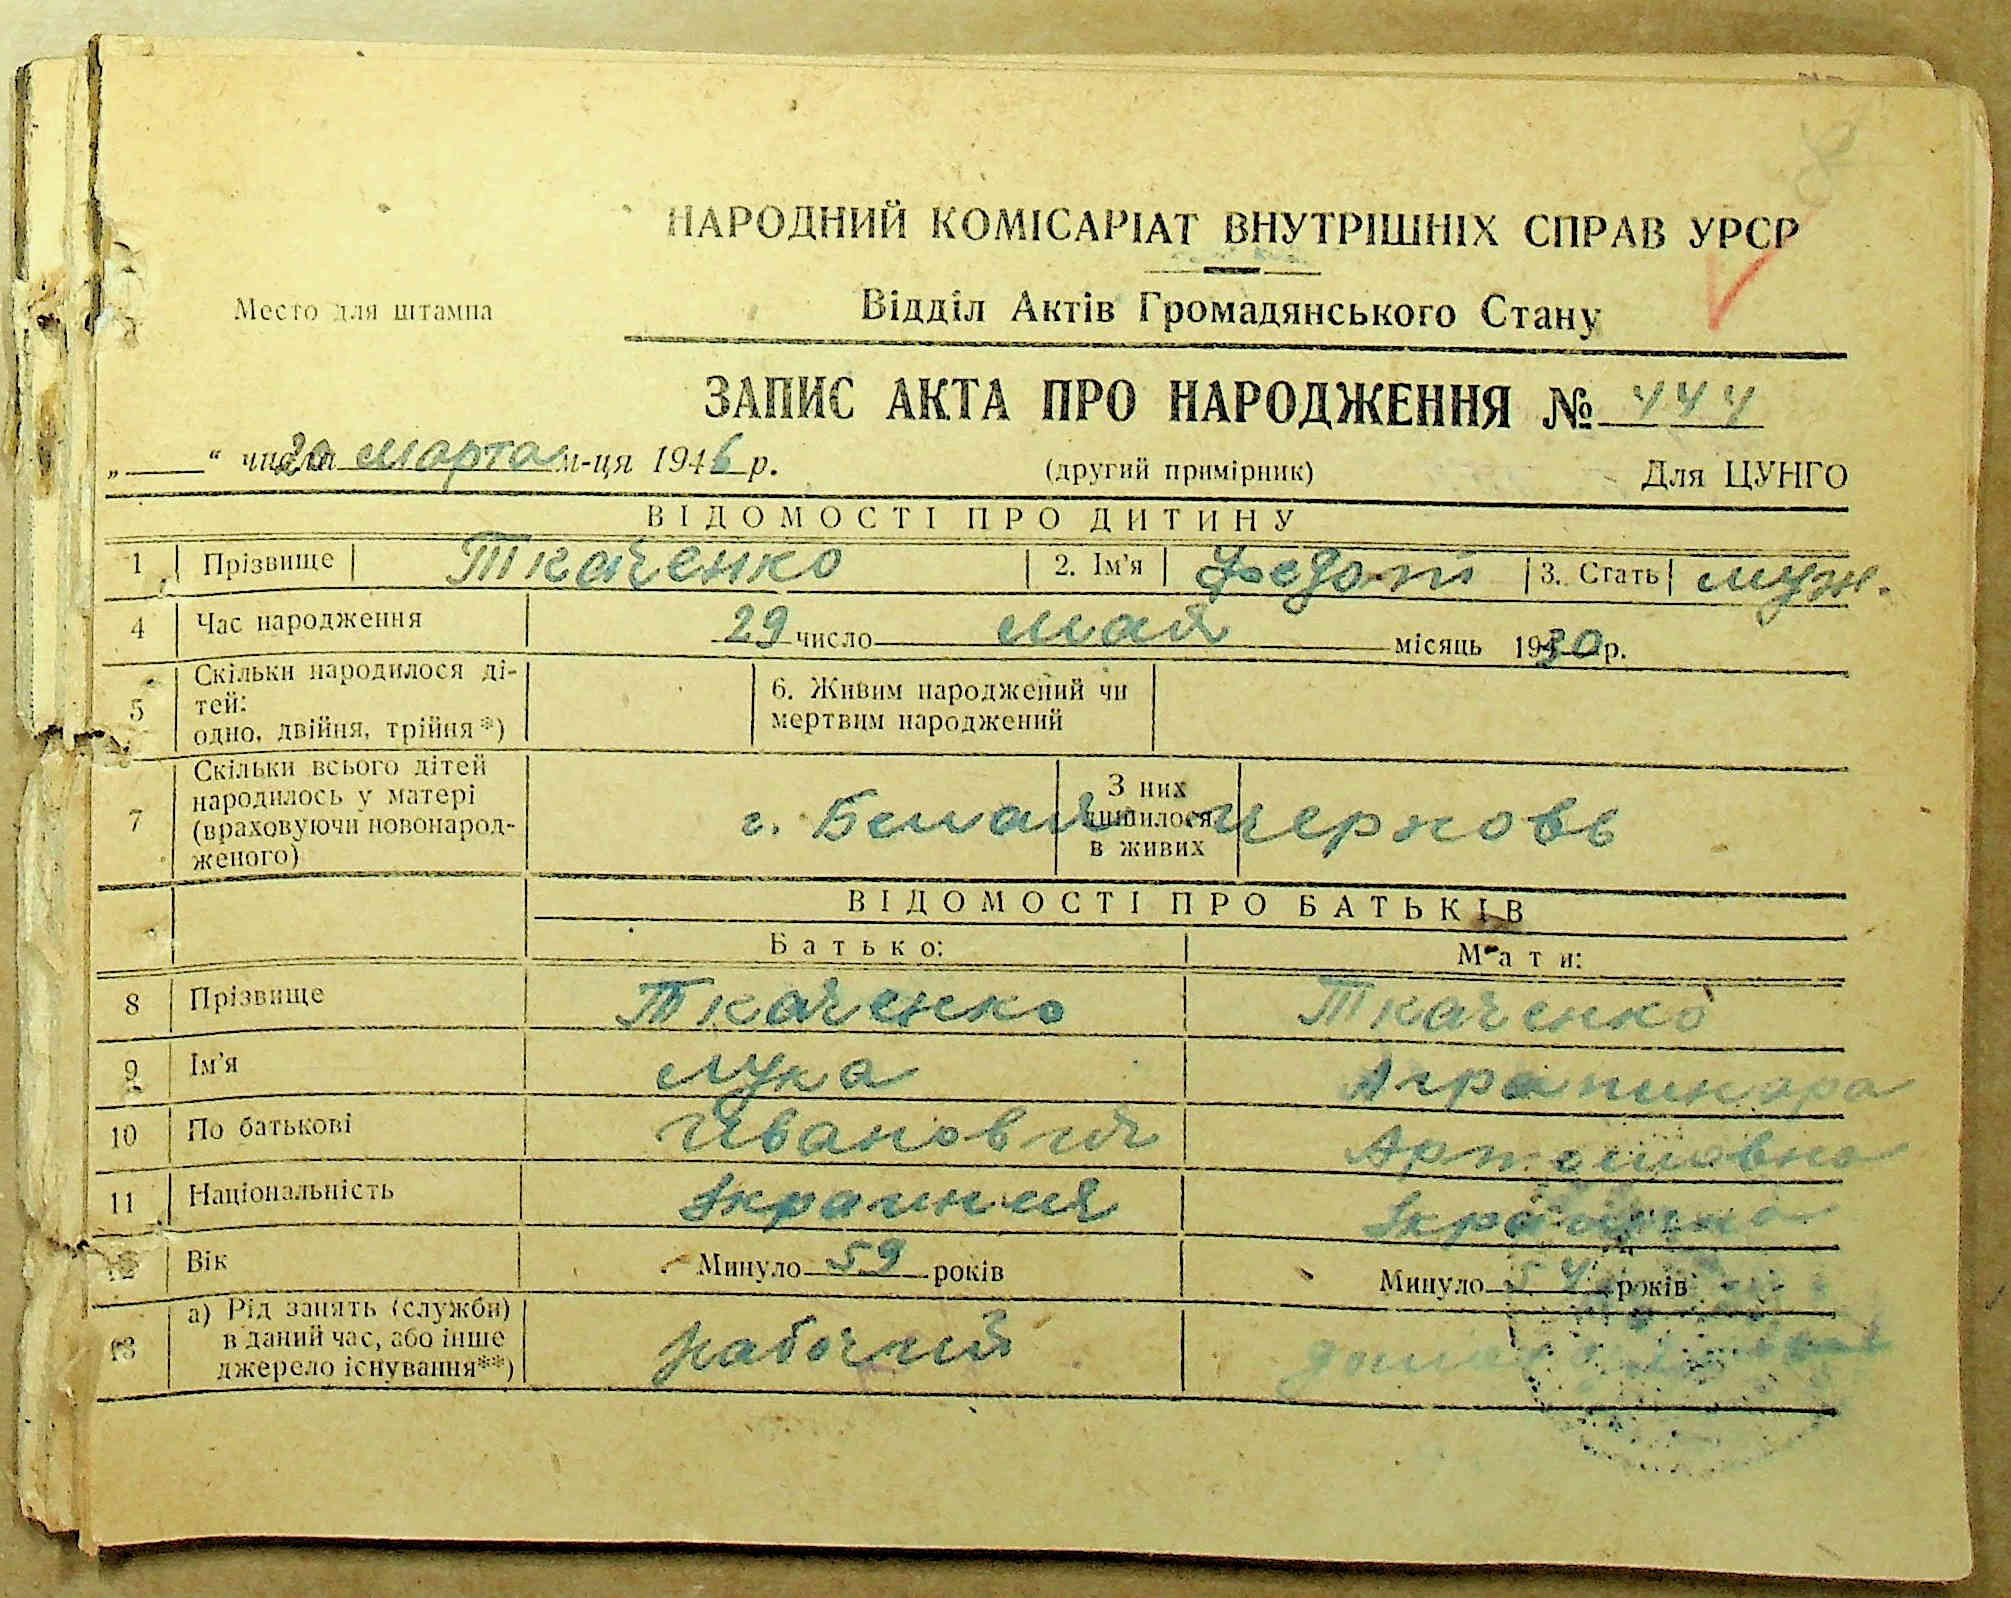 НАРОДНИЙ КОМІСАРІАТ ВНУТРІШНІХ СПРАВ УРСР
Место для штампа
Відділ Актів Громадянського Стану
ЗАПИС АКТА ПРО НАРОДЖЕННЯ № 444
„ “ числа 20 марта м-ця 1946 р. (другий примірник) Для ЦУНГО
ВІДОМОСТІ ПРО ДИТИНУ
1 Прізвище Ткаченко 2. Ім'я Федот 3. Стать муж.
4 Час народження 29 число мая місяць 1930 р.
5 Скільки народилося ді-
тей:
одно, двійня, трійня*)
6. Живим народжений чи
мертвим народжений
7 Скільки всього дітей
народилось у матері
(враховуючи новонарод-
женого)
З них
лишилося
в живих
г. Белая Церковь
ВІДОМОСТІ ПРО БАТЬКІВ
Батько: Мати:
8 Прізвище Ткаченко Ткаченко
9 Ім'я Лука
10 По батькові Иванович Артемовна
11 Національність
12 Вік Минуло 59 років Минуло 54 років
13 а) Рід занять (служби)
в даний час, або інше
джерело існування**)
рабочий